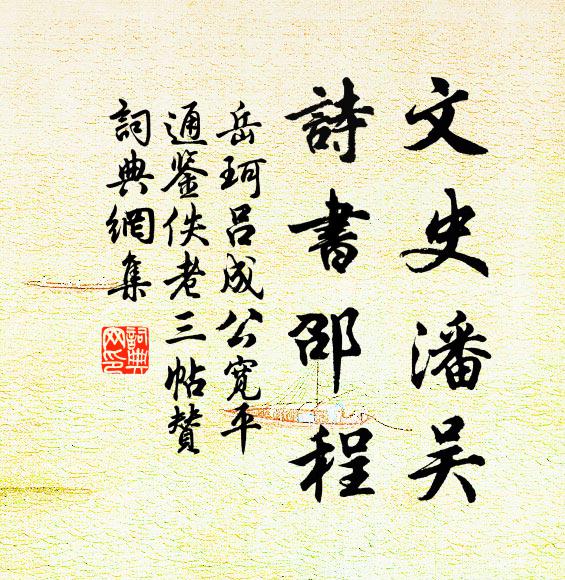 文史潘吴
詩書邵程
岳珂呂成公寬平
通鉴佚老三帖贊
詞典網集
詞典
网印